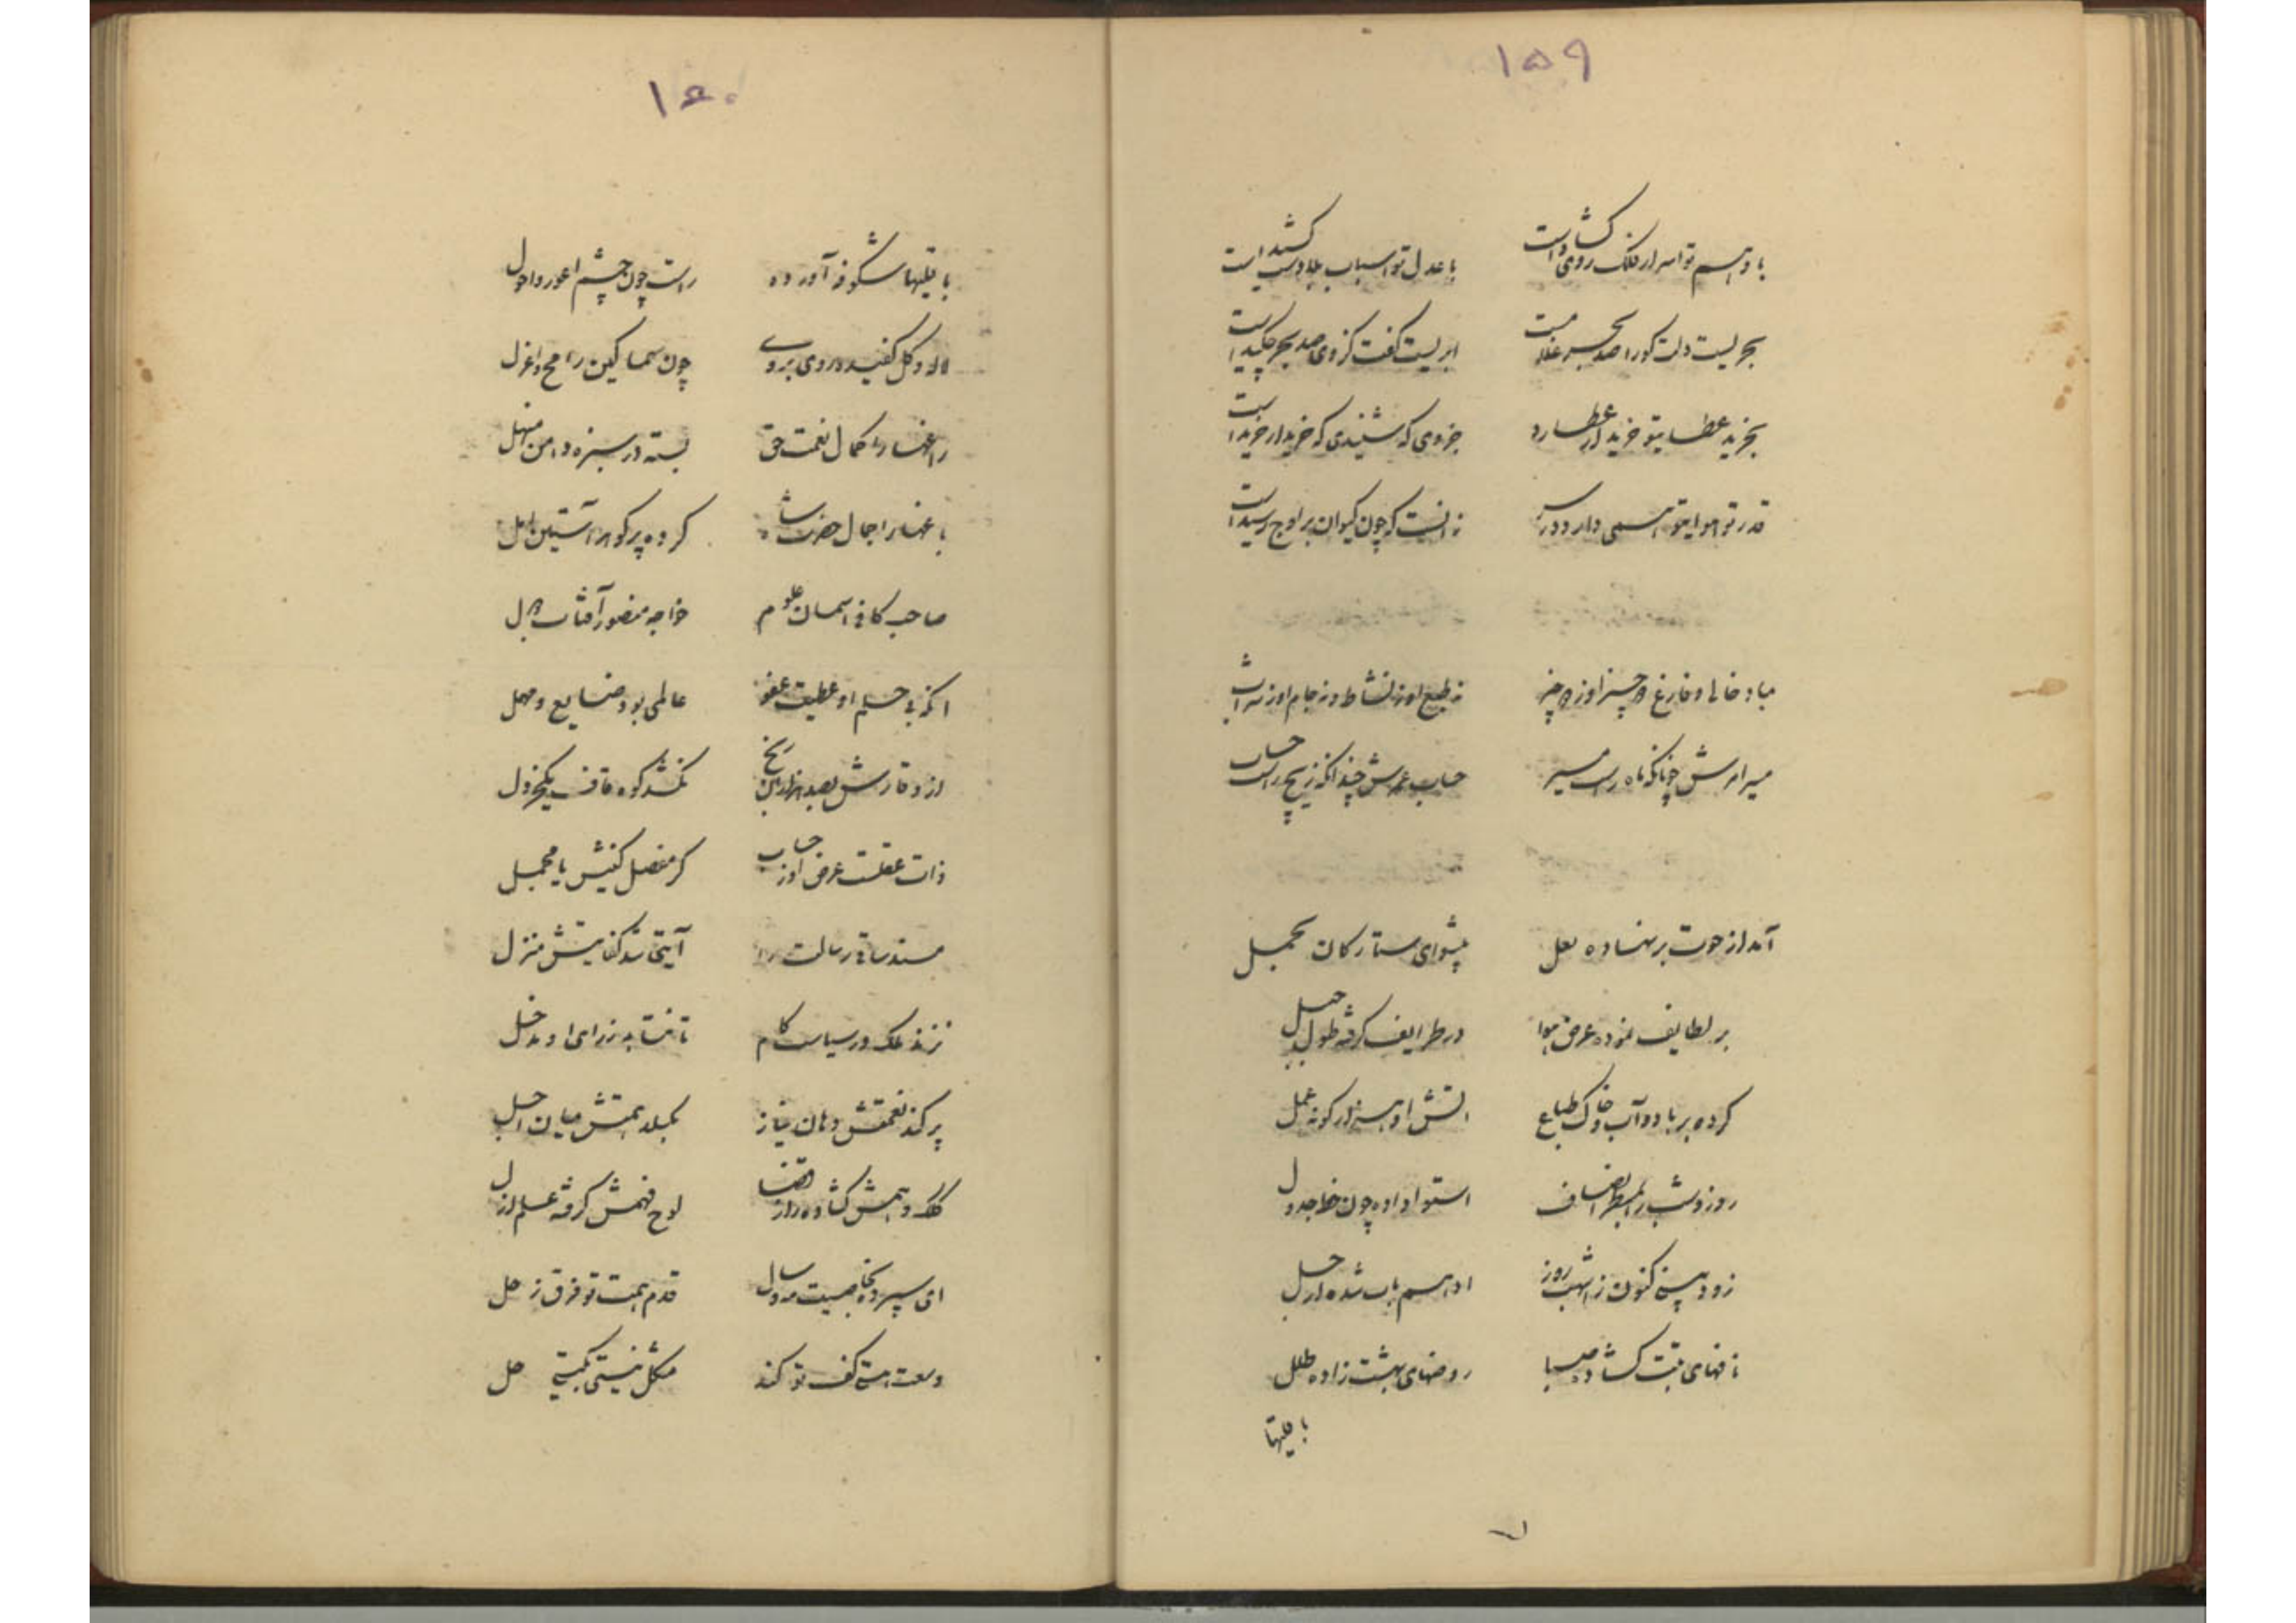 ۱۵۹
با وهم تو اسرار فلک روی گشادست با عدل تو اسباب بلا دست کشیداست
بحریست دلت کورا صد بحر غلامست ابریست کفت کز وی صد بحر چکیداست
بخرید عطا یتو خریدار عطارد جز وی که شنیدی که خریدار خریداست
قدر تو هوایتو همی دارد در سر زانست که چون کیوان بر اوج رسیداست
مباد خالی و فارغ ز چیز او ز چیز نه طبع او ز نشاط و نه جام او ز شراب
مسیر امرش چونانکه ماه راست مسیر حساب عمرش چندانکه زیج راست حساب
آمد از حوت بر نهاده بعل پیشوای ستارکان بحمل
بر لطایف نموده عرض هوا در طرایف گرفته طول جبل
کرده بر باد و آب و خاک طباع آتش او هزار کونه عمل
روز و شب را بمسطر انصاف استوا داده چون خط جدول
زود بینی کنون ز اشهب روز ادهم شب شده ارجل
نافهای تبت گشاده صبا روضهای بهشت زاده طلل
با تلها
۱۶۰
با تلها شکوفه آورده راست چون چشم اعور و احول
لاله و کل کفیده روی بروی چون سماکین رامح و اعزل
راغها را کمال نعمت حق بسته در سبزه دامن منهل
باغها را جمال حضرت شاه کرده پر کوهر آستین امل
صاحب کافی آسمان علوم خواجه منصور آفتاب دول
آنکه بی حلم او عطیت عفو عالمی بود ضایع و مهمل
از وقارش بصد هزاران رنج نکشد کوه قاف یکخردل
ذات عقلست عرض او ز حساب کر مفصل کنیش یا مجمل
مسند ساقی رسالت را آیتی شد کفایتش منزل
نزند ملک در سیاست کام تا نتابد ز رای او مدخل
پر کند نعمتش دهان نیاز بکسلد همتش میان اجل
کلک وهمش گشاده راز قضا لوح فهمش گرفته علم ازل
ای سپرده بجاه هیبت سال قدم همت تو فرق زحل
وسعت هستی کف تو کند مشکل نیستی بکیتی حل